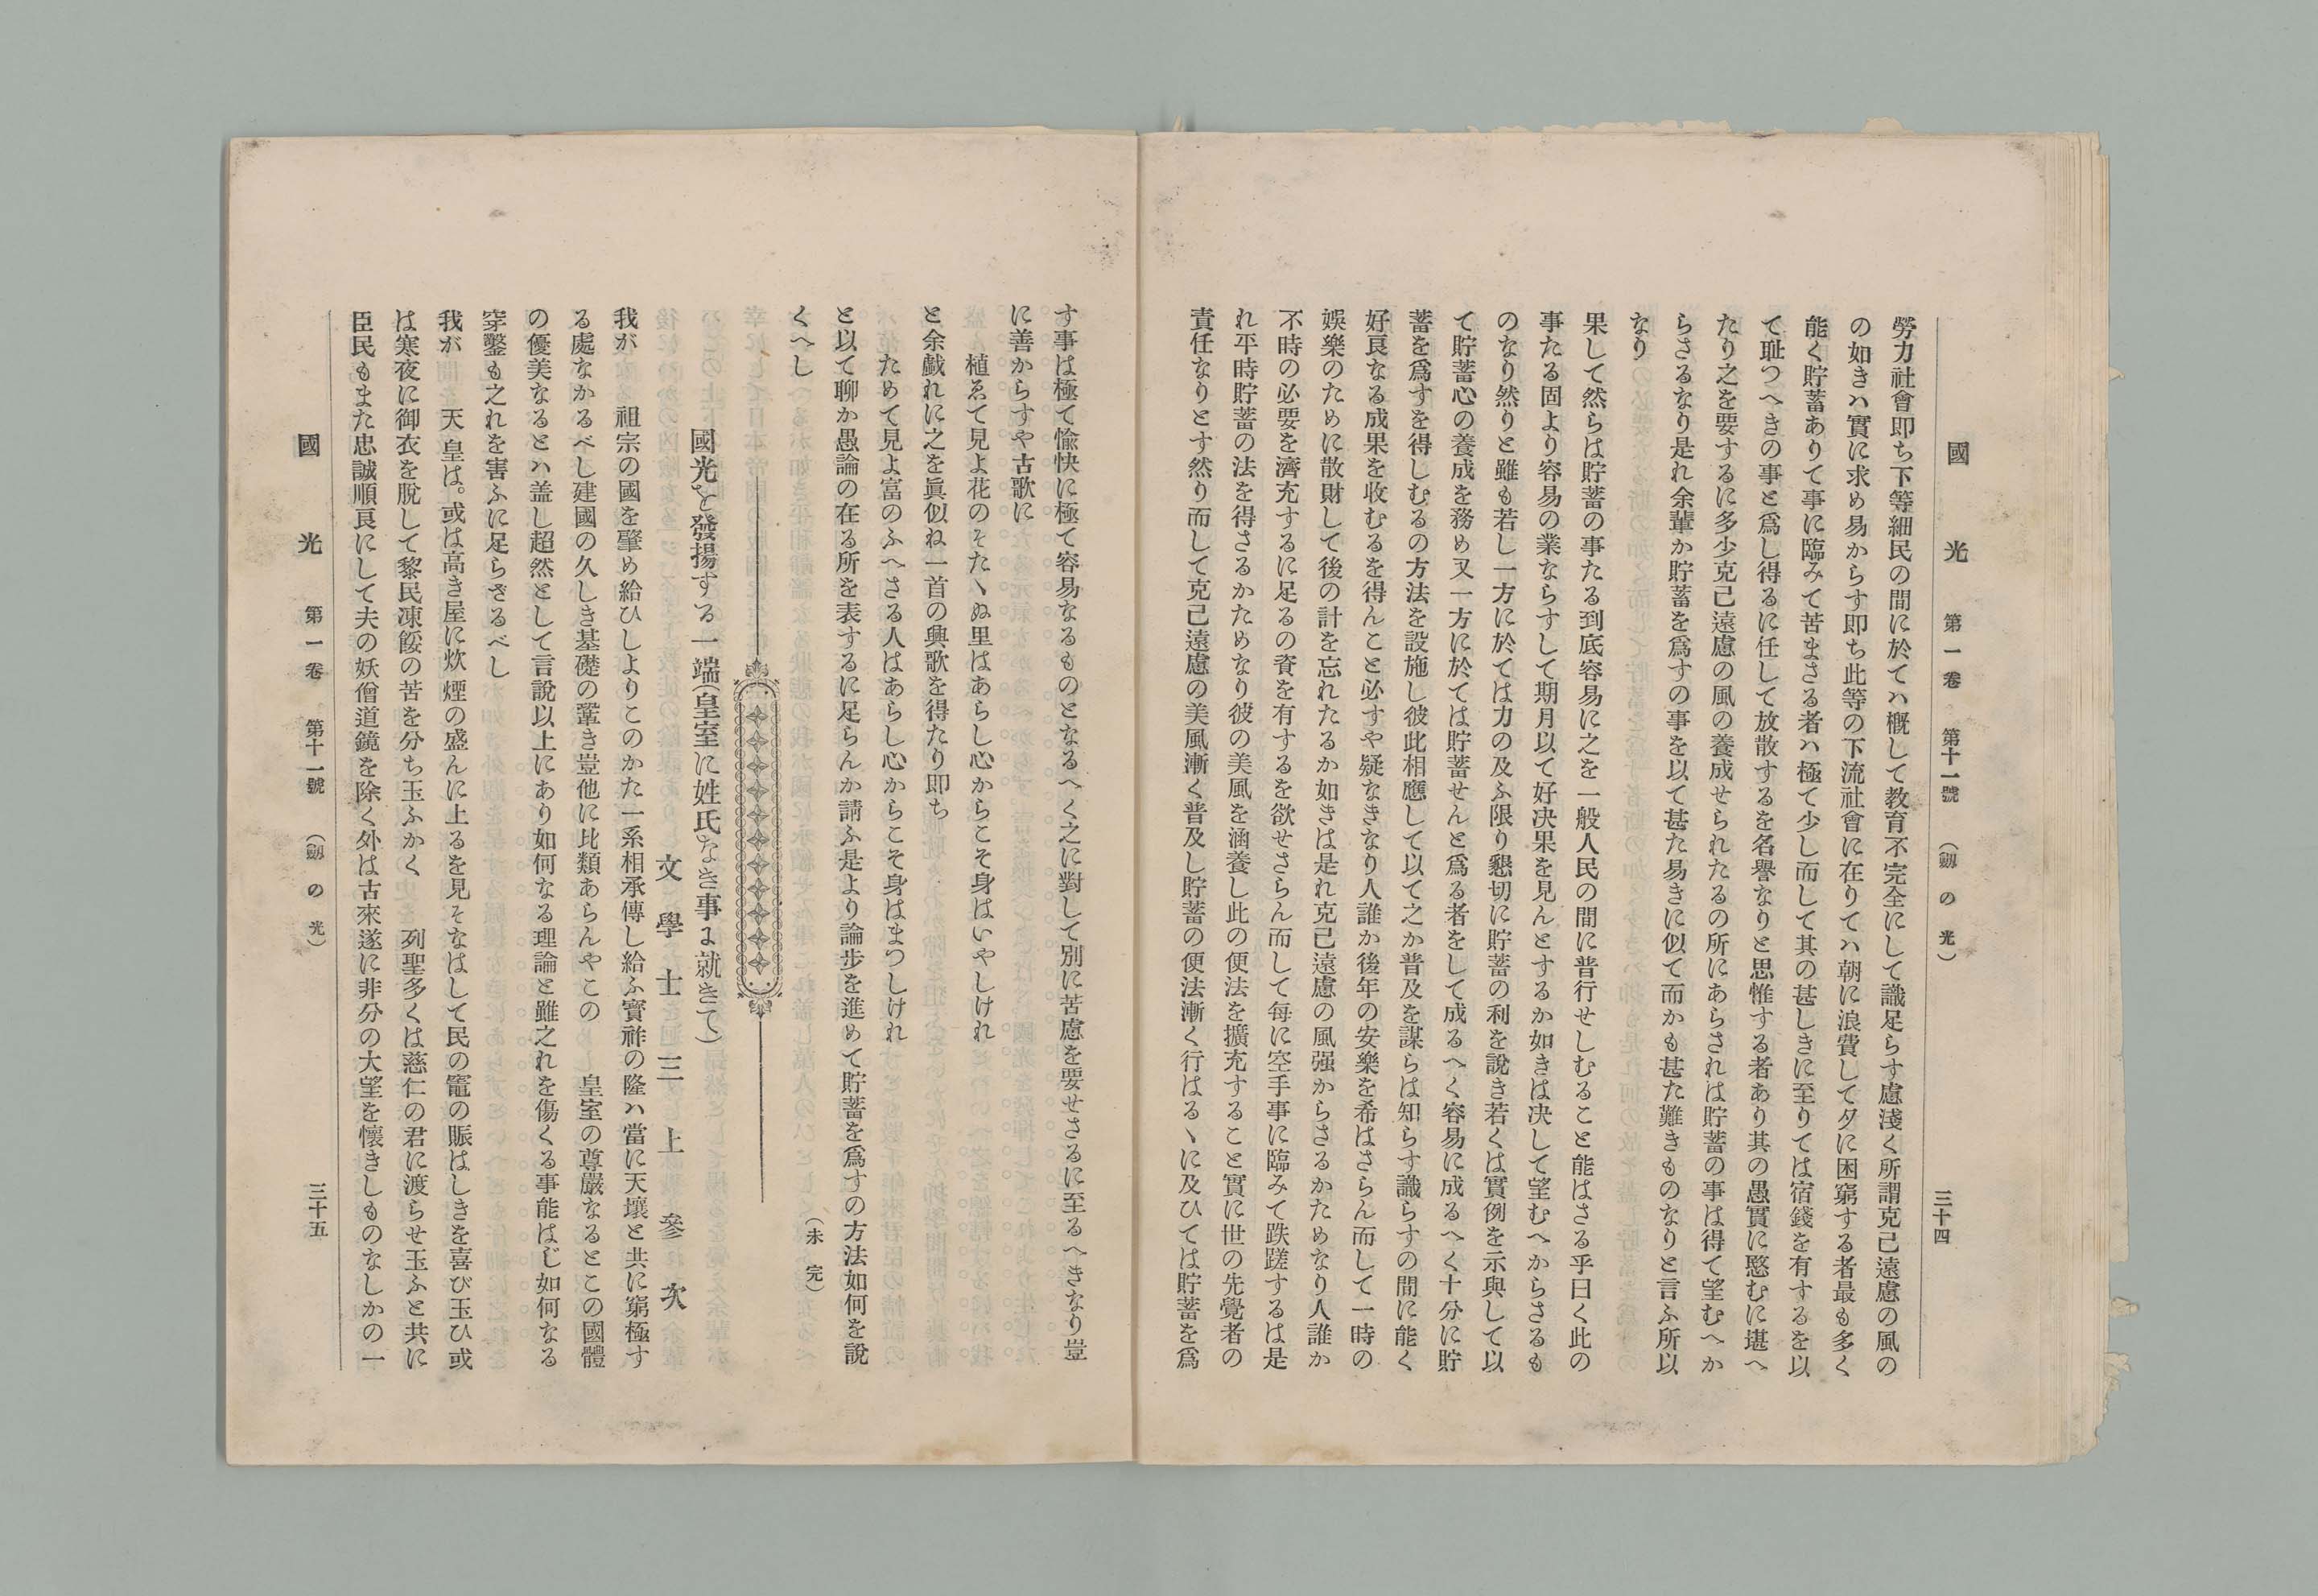 國光 第一卷 第十一號 (劔の光) 三十四
勞力社會即ち下等細民の間に於てハ概して教育不完全にして識足らす慮淺く所謂克己遠慮の風の
の如きハ實に求め易からす即ち此等の下流社會に在りてハ朝に浪費して夕に困窮する者最も多く
能く貯蓄ありて事に臨みて苦まさる者ハ極て少し而して其の甚しきに至りては宿錢を有するを以
て耻つへきの事と爲し得るに任して放散するを名譽なりと思惟する者あり其の愚實に愍むに堪へ
たり之を要するに多少克己遠慮の風の養成せられたるの所にあらされは貯蓄の事は得て望むへか
らさるなり是れ余輩か貯蓄を爲すの事を以て甚た易きに似て而かも甚た難きものなりと言ふ所以
なり
果して然らは貯蓄の事たる到底容易に之を一般人民の間に普行せしむること能はさる乎曰く此の
事たる固より容易の業ならすして期月以て好决果を見んとするか如きは决して望むへからさるも
のなり然りと雖も若し一方に於ては力の及ふ限り懇切に貯蓄の利を說き若くは實例を示與して以
て貯蓄心の養成を務め又一方に於ては貯蓄せんと爲る者をして成るへく容易に成るへく十分に貯
蓄を爲すを得しむるの方法を設施し彼此相應して以て之か普及を謀らは知らす識らすの間に能く
好良なる成果を收むるを得んこと必すや疑なきなり人誰か後年の安樂を希はさらん而して一時の
娯樂のために散財して後の計を忘れたるか如きは是れ克己遠慮の風强からさるかためなり人誰か
不時の必要を濟充するに足るの資を有するを欲せさらん而して毎に空手事に臨みて跌蹉するは是
れ平時貯蓄の法を得さるかためなり彼の美風を涵養し此の便法を擴充すること實に世の先覺者の
責任なりとす然り而して克己遠慮の美風漸く普及し貯蓄の便法漸く行はるゝに及ひては貯蓄を爲
す事は極て愉快に極て容易なるものとなるへく之に對して別に苦慮を要せさるに至るへきなり豈
に善からすや古歌に
植ゑて見よ花のそたゝぬ里はあらし心からこそ身はいやしけれ
と余戯れに之を眞似ね一首の興歌を得たり即ち
ためて見よ富のふへさる人はあらし心からこそ身はまつしけれ
と以て聊か愚論の在る所を表するに足らんか請ふ是より論歩を進めて貯蓄を爲すの方法如何を說
くへし
(未完)
國光を發揚する一端(皇室に姓氏なき事に就きて)
文學士 三上參次
我が 祖宗の國を肇め給ひしよりこのかた一系相承傳し給ふ寶祚の隆ハ當に天壤と共に窮極す
る處なかるべし建國の久しき基礎の鞏き豈他に比類あらんやこの 皇室の尊嚴なるとこの國體
の優美なるとハ盖し超然として言說以上にあり如何なる理論と雖之れを傷くる事能はじ如何なる
穿鑿も之れを害ふに足らざるべし
我が 天皇は。或は高き屋に炊煙の盛んに上るを見そなはして民の竈の賑はしきを喜び玉ひ或
は寒夜に御衣を脫して黎民凍餒の苦を分ち玉ふかく 列聖多くは慈仁の君に渡らせ玉ふと共に
臣民もまた忠誠順良にして夫の妖僧道鏡を除く外は古來遂に非分の大望を懷きしものなしかの一
國光 第一卷 第十一號 (劔の光) 三十五